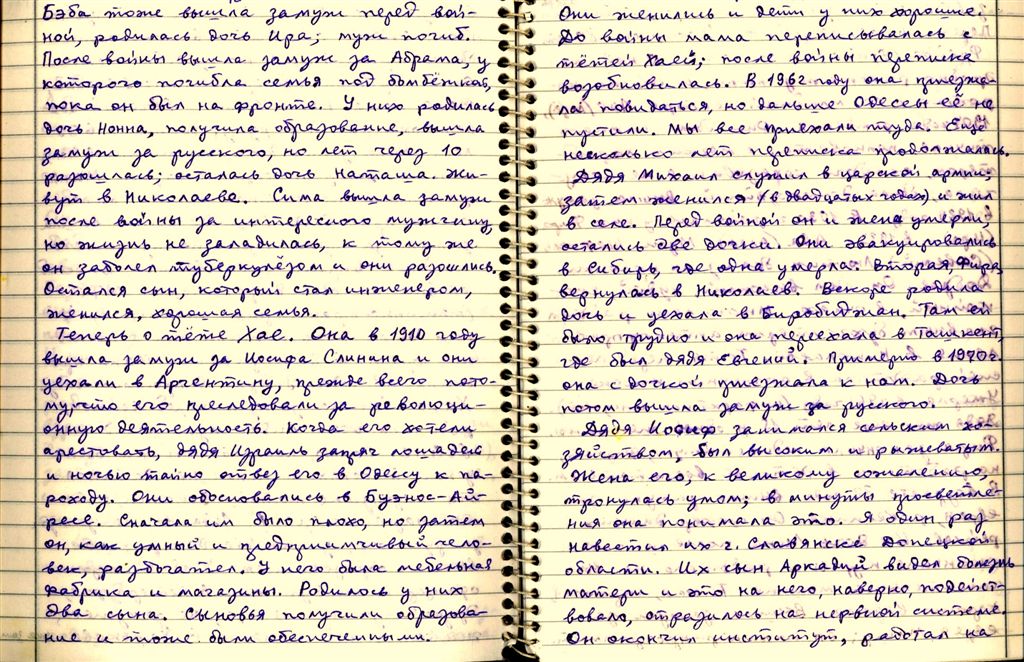 Бэба тоже вышла замуж перед вой-
ной, родилась дочь Ира; муж погиб.
После войны вышла замуж за Абрама, у
которого погибла семья под бомбёжкой,
пока он был на фронте. У них родилась
дочь Нонна, получила образование, вышла
замуж за русского, но лет через 10
разошлась; осталась дочь Наташа. Жи-
вут в Николаеве. Сима вышла замуж
после войны за интересного мужчину,
но жизнь не заладилась, к тому же
он заболел туберкулёзом и они разошлись.
Остался сын, который стал инженером,
женился, хорошая семья.
Теперь о тёте Хае. Она в 1910 году
вышла замуж за Иосифа Слинина и они
уехали в Аргентину, прежде всего пото-
му,что его преследовали за революци-
онную деятельность. Когда его хотели
арестовать, дядя Израиль запряг лошадей
и ночью тайно отвез его в Одессу к па-
роходу. Они обосновались в Буэнос-Ай-
ресе. Сначала им было плохо, но затем
он, как умный и предприимчивый чело-
век, разбогател. У него была мебельная
фабрика и магазины. Родилось у них
два сына. Сыновья получили образова-
ние и тоже были обеспеченными.
Они женились и дети у них хорошие.
До войны мама переписывалась с
тётей Хаей; после войны переписка
возобновилась. В 1962 году она приезжа-
ла повидаться, но дальше Одессы её не
пустили. Мы все приехали туда. Ещё
несколько лет переписка продолжалась.
Дядя Михаил служил в царской армии;
затем женился (в двадцатых годах) и жил
в селе. Перед войной он и жена умерли,
остались две дочки. Они эвакуировались
в Сибирь, где одна умерла. Вторая, Фира,
вернулась в Николаев. Вскоре родила
дочь и уехала в Биробиджан. Там ей
было трудно и она переехала в Ташкент,
где был дядя Евгений. Примерно в 1970 г.
она с дочкой приезжала к нам. Дочь
потом вышла замуж за русского.
Дядя Иосиф занимался сельским хо-
зяйством, был высоким и рыжеватым.
Жена его, к великому сожалению,
тронулась умом; в минуты просветле-
ния она понимала это. Я один раз
навестил их г. Славянске Донецкой
области. Их сын Аркадий видел болезнь
матери и это на него, наверно, подейст-
вовало, отразилось на нервной системе.
Он окончил институт, работал на